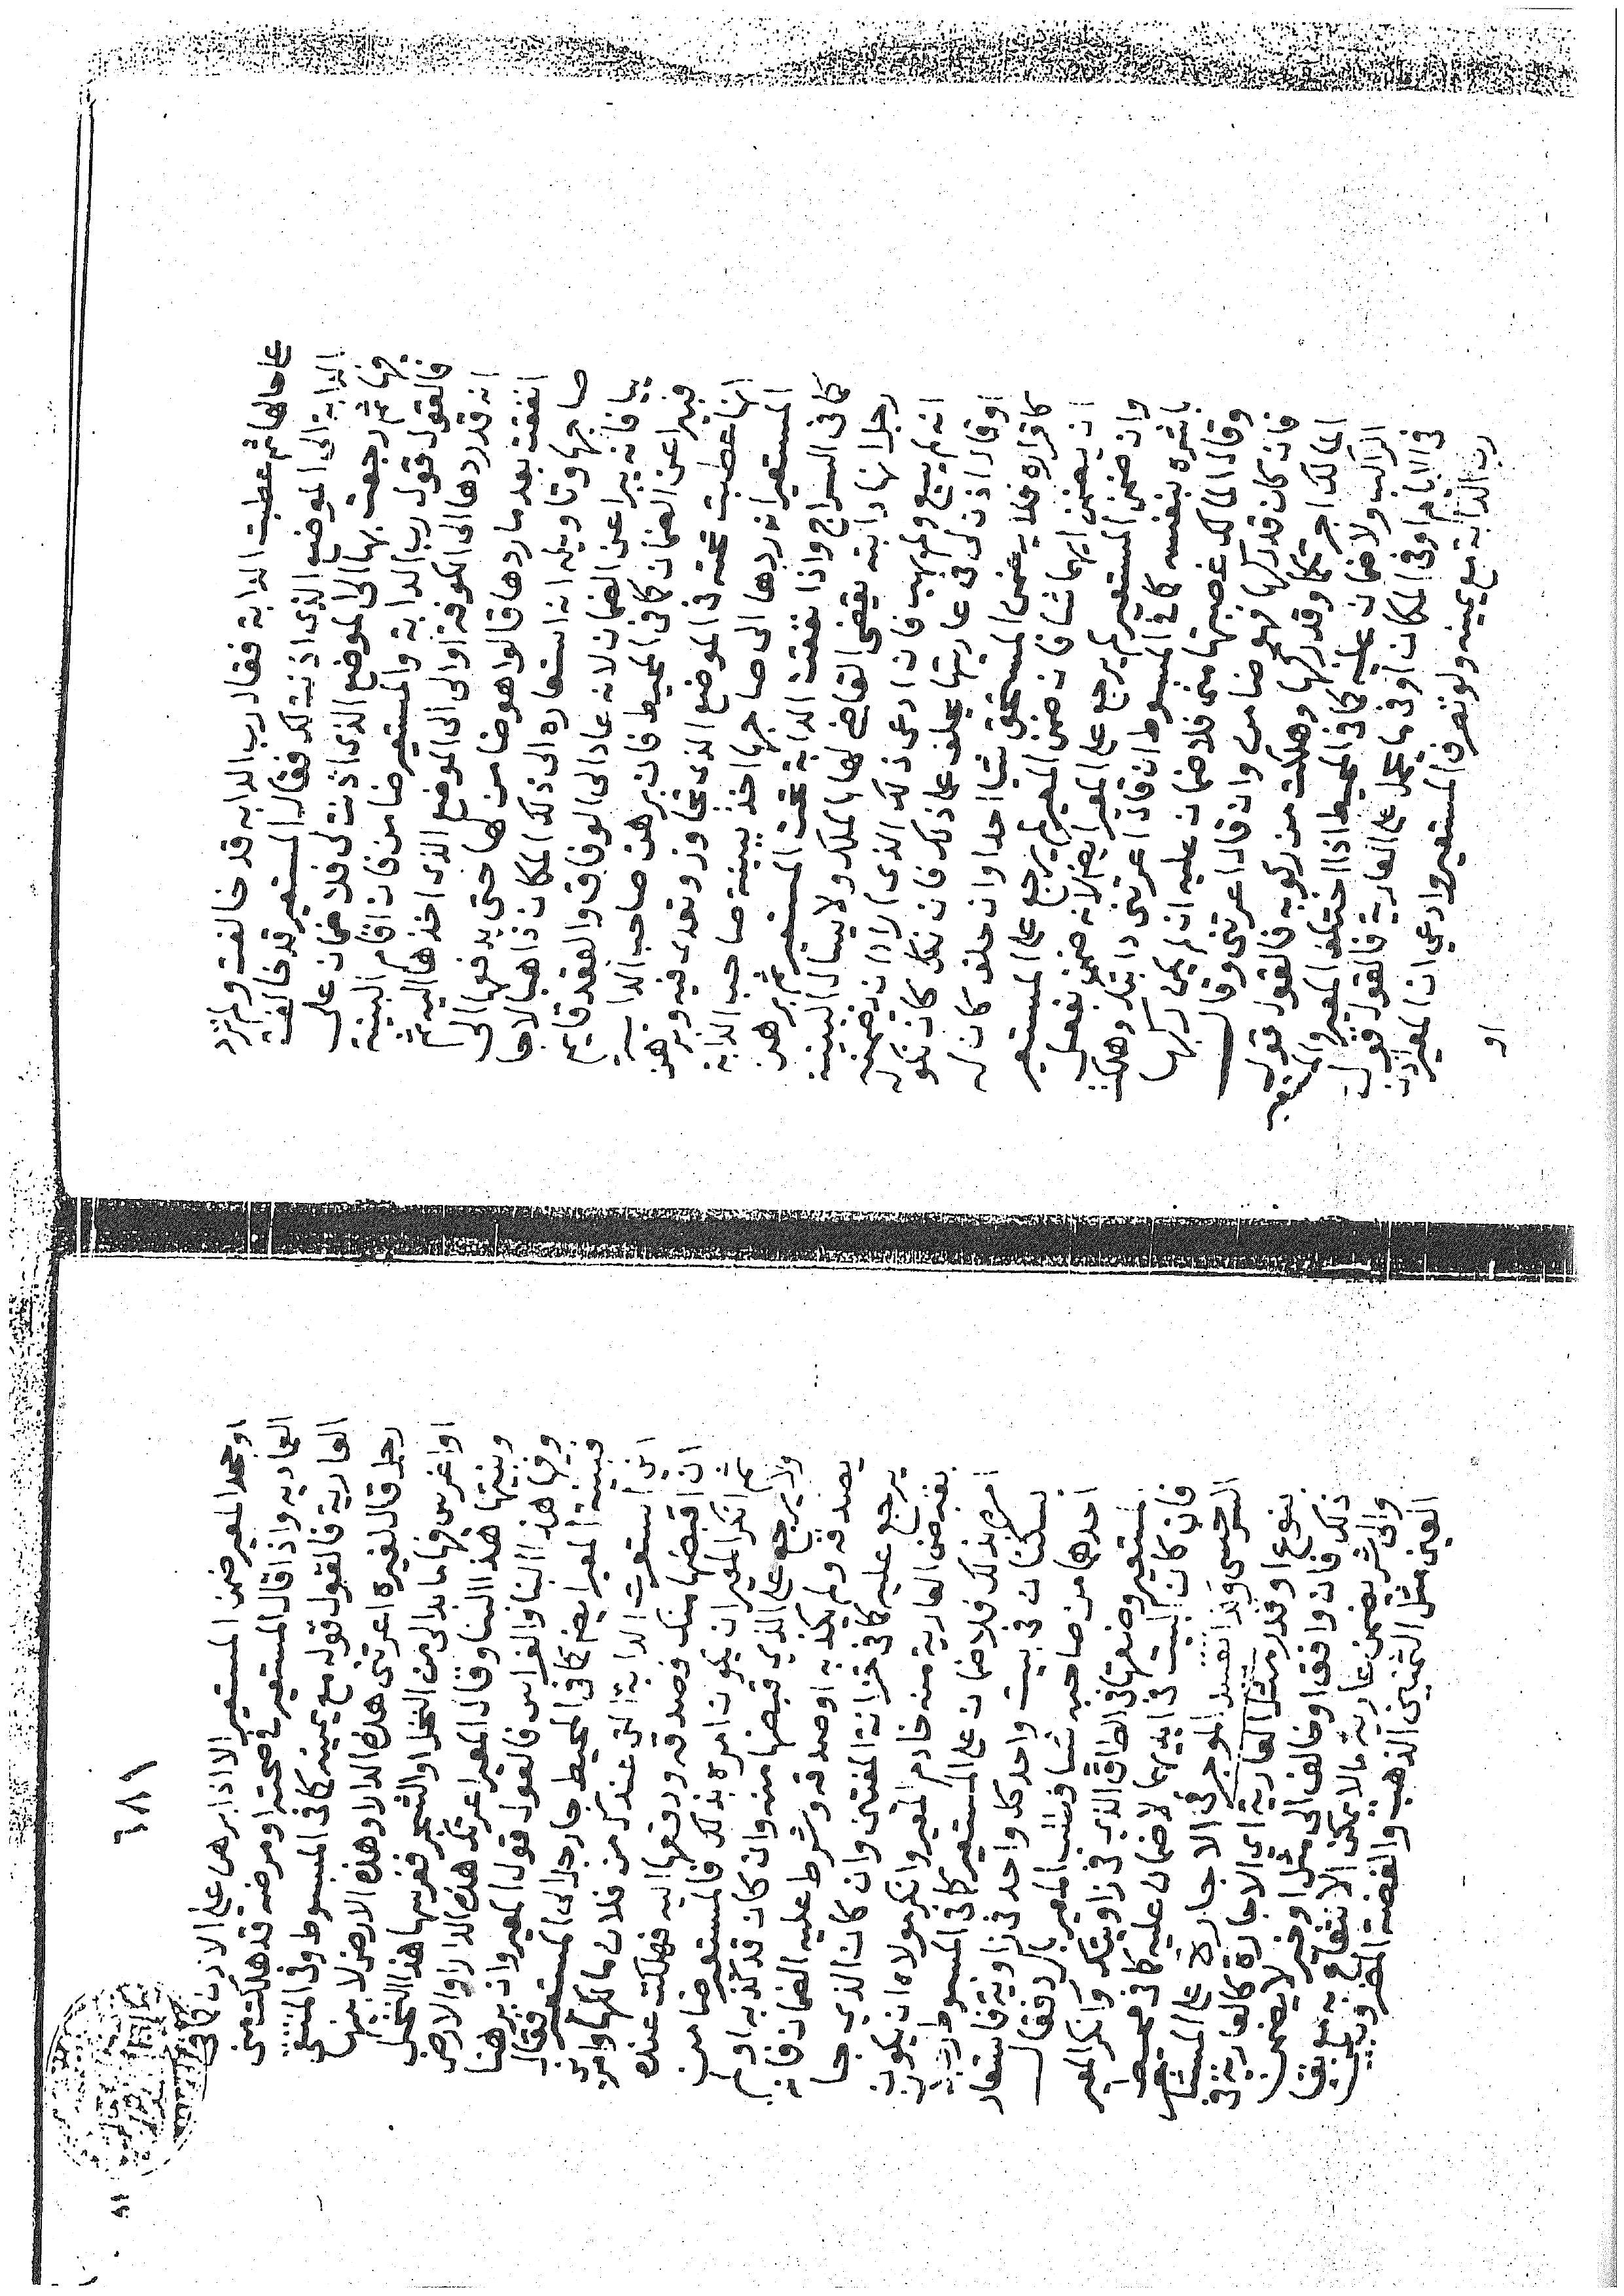 على حالها ثم عطبت الدابة فقال رب الدابه قد خالفت ولم ترد
الدابة الى الموضع الذي اذنت لك فقال المستعير قد خالفت
فيها ثم رجعت بها الى الموضع الذي اذنت لي فلا ضمان على
فالقول قول رب الدابة والمستعير ضامن فان اقام البينة
انه قد ردها الى الكوفة او الى الموضع الذي اخذها اليه ثم
انفقت بعد ما ردها قالوا هو ضامن لها حتى يدفعها الى
صاحبها وتاويله انه استعاره الى ذلك المكان ذاهبا لا جا
ييا فانه يبرا عن الضمان لانه عاد الى الوفاق والعقد قايم
فيبرا عن الضمان كما في المحيط فان برهن صاحب الدابة
انها عطبت تحته في الموضع الذي تجاوز وتعدى فيه وبرهن
المستعير انه ردها الى صاحبها اخذ ببينة صاحب الدابة
كما في السراج واذا نفقت الدابة تحت المستعير ثم برهن
رجل انها دابته يقضى القاضي لها بالملك ولا يسال البينة
انه لم يبع ولم يهب فان ادعى ذلك الذي اراد ان يضمنه
او قال اذن لى في عاريتها يحلف على ذلك فان نكل كان نكوله
كاقراره فلا يضمن المستحق شيا احدا وان حلف كان له
ان يضمن ايهما شا فان ضمن المعير لم يرجع على المستعير
وان ضمن المستعير لم يرجع على المعير ايضا لانه ضمن بفعل
باشره بنفسه كما في المبسوط ان قال اعرتنى دابتك وهلكت
وقال المالك غصبتها منى فلا ضمان عليه ان لم يكن ركبها
فان كان قد ركبها فهو ضامن وان قال اعرتنى وقال
المالك اجرتكها وقد ركبها وهلكت من ركوبه فالقول قول
الراكب ولا ضمان عليه كما في المحيط اذا اختلف المعير والمستعير
في الايام او في المكان او فيما يحمل على العارية فالقول قول
رب الدابة مع يمينه ولو تصرف المستعير وادعى ان المعير اذن
او
٦٨٩
او جحد المعير ضمن المستعير الا اذا برهن على الاذن كما في
العماديه واذا قال المستعير في صحته او مرضه قد هلكت منى
العارية فالقول قوله مع يمينه كما في المبسوط وفي المنتقى
رجل قال لغيره اعرتنى هذه الدار او هذه الارض لابنيها
او اغرس فيها ما بدا لى من النخل والشجر فغرستها هذا النخل
وبنيتها هذا البنا وقال المعير اعرتك هذه الدار او الارض
وفيها هذا البنا والغراس فالقول قول المعير وان برهنا
فبينة المعير ايضا كما في المحيط جا رجل الى المستعير فقال
انى استعرت الدابة التى عندك من فلان مالكها وامرنى
ان اقبضها منك فصدقه ودفعها اليه فهلكت عنده
ثم انكر المعير ان يكون امره بذلك فالمستعير ضامن
ولا يرجع على الذي قبضها منه وان كان قد كذبه او لم
يصدقه ولم يكذبه او صدقه وشرط عليه الضمان فانه
يرجع عليه كما في خزانة المفتين وان كان الذي جا
بقبض العارية منه خادم المعير وانكر مولاه ان يكون
امره بذلك فلا ضمان على المستعير كما في المبسوط
يسكنان في بيت واحد كل واحد في زاوية فاستعار
احدهما من صاحبه شيا وطلب المعير بالرد فقال
المستعير وضعتها في الطاق الذي في زاويتك وانكر المعير
فان كان البيت في ايديهما لا ضمان عليه كما في محيط
السرخسى وقد الموجر في الاجارة على المستاجر
بنوع او قدر مثل العارية اي الاجارة كالعارية في
ذلك فان وافق او خالف الى مثل او خير لا يضمن
والى الشر يضمن عارية مالا يمكن الانتفاع به مع بقا
العين مثل الثمنين الذهب والفضة المضروبين